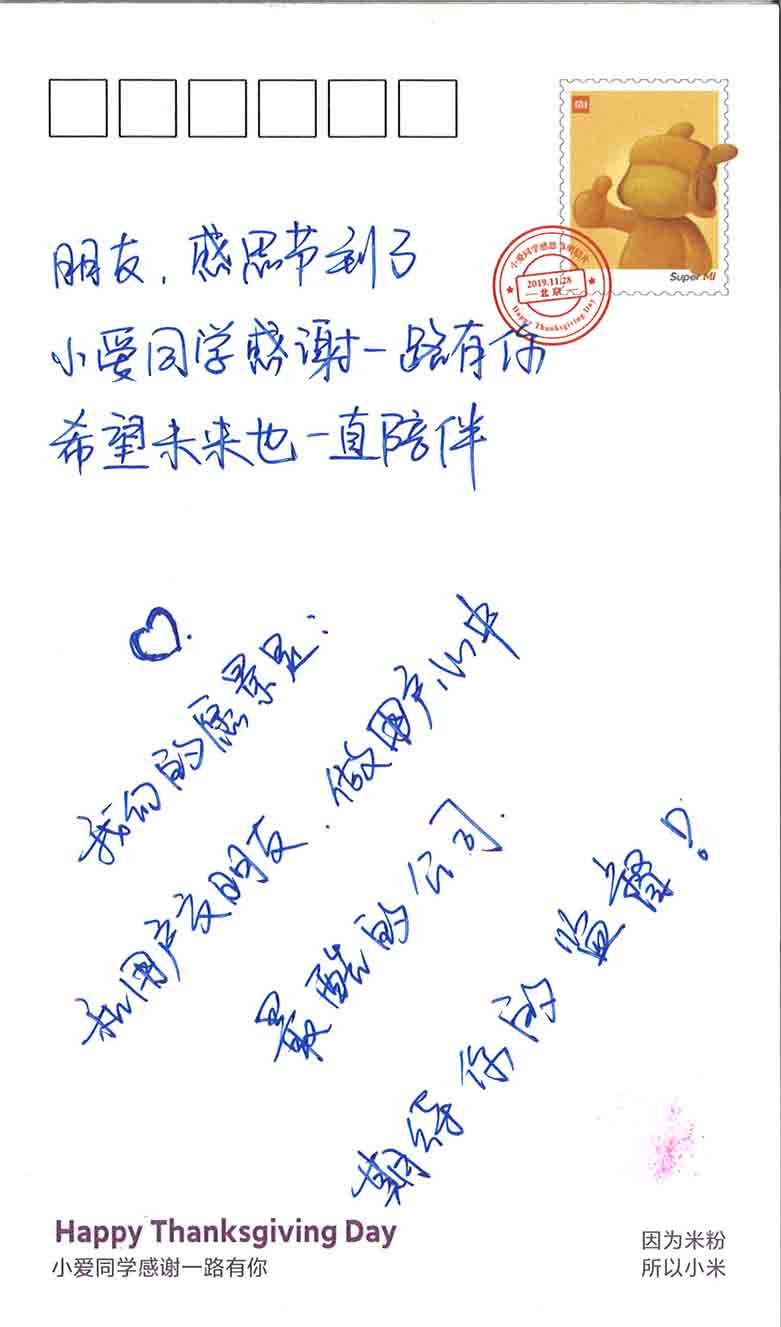 MI
Super Mi
小爱同学感恩节明信片
2019.11.28
北京
Happy Thanksgiving Day
朋友，感恩节到了
小爱同学感谢一路有你
希望未来也一直陪伴
我们的愿景是：
和用户交朋友，做用户心中
最酷的公司.
期待你的监督！
Happy Thanksgiving Day
小爱同学感谢一路有你
因为米粉
所以小米